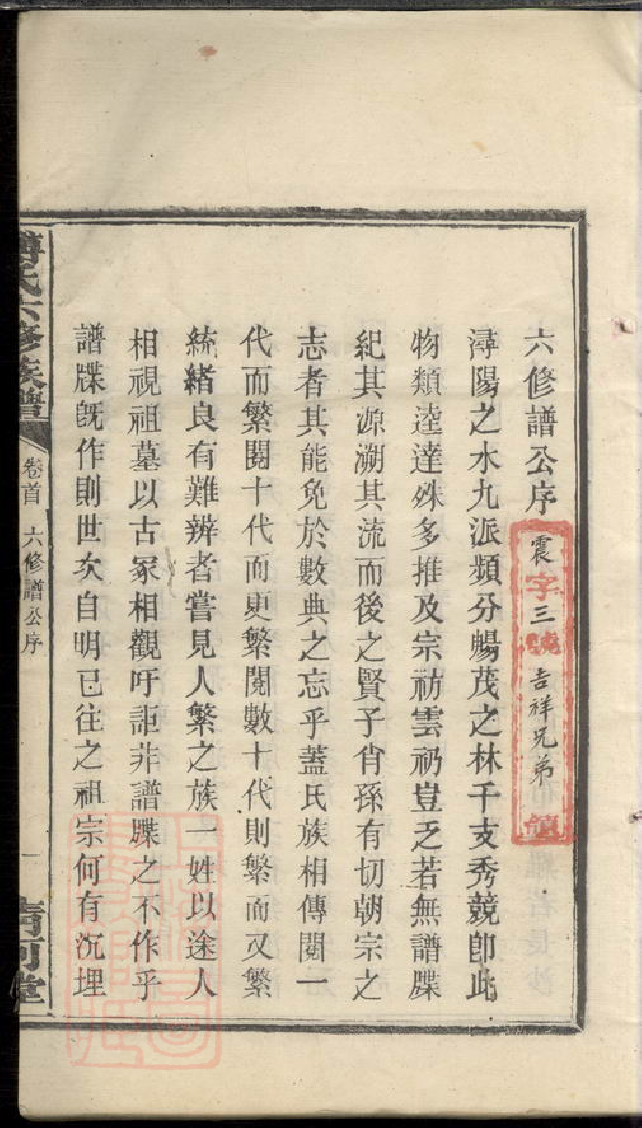 六修譜公序
震字三號 吉祥兄弟 領
潯陽之水九派頻分暢茂之林千支秀競卽此
物類逵達殊多推及宗祊雲礽豈乏若無譜牒
紀其源溯其流而後之賢子肖孫有切朝宗之
志者其能免於數典之忘乎蓋氏族相傳閱一
代而繁閱十代而更繁閱數十代則繁而又繁
統緒良有難辨者嘗見人繁之族一姓以途人
相視祖墓以古冢相觀吁詎非譜牒之不作乎
譜牒旣作則世次自明已往之祖宗何有沉埋
氏六修族譜
卷首 六修譜公序
一
清河堂